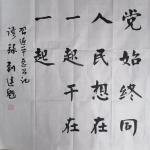 党始终同
人民想在
一起干在
一起
习近平总书记